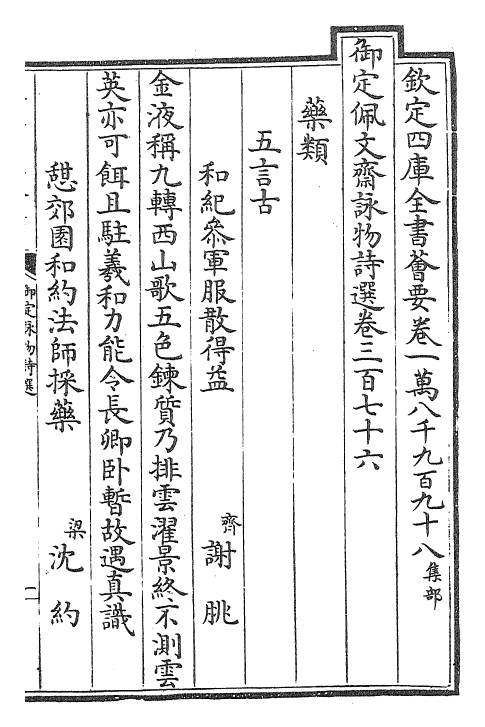 欽定四庫全書薈要卷一萬八千九百九十八集部
御定佩文齋詠物詩選卷三百七十六
藥類
五言古
和紀參軍服散得益 齊謝朓
金液稱九轉西山歌五色鍊質乃排雲濯景終不測雲
英亦可餌且駐羲和力能令長卿卧暫故遇真識
憇郊園和約法師採藥 梁沈約
御定詠物詩選